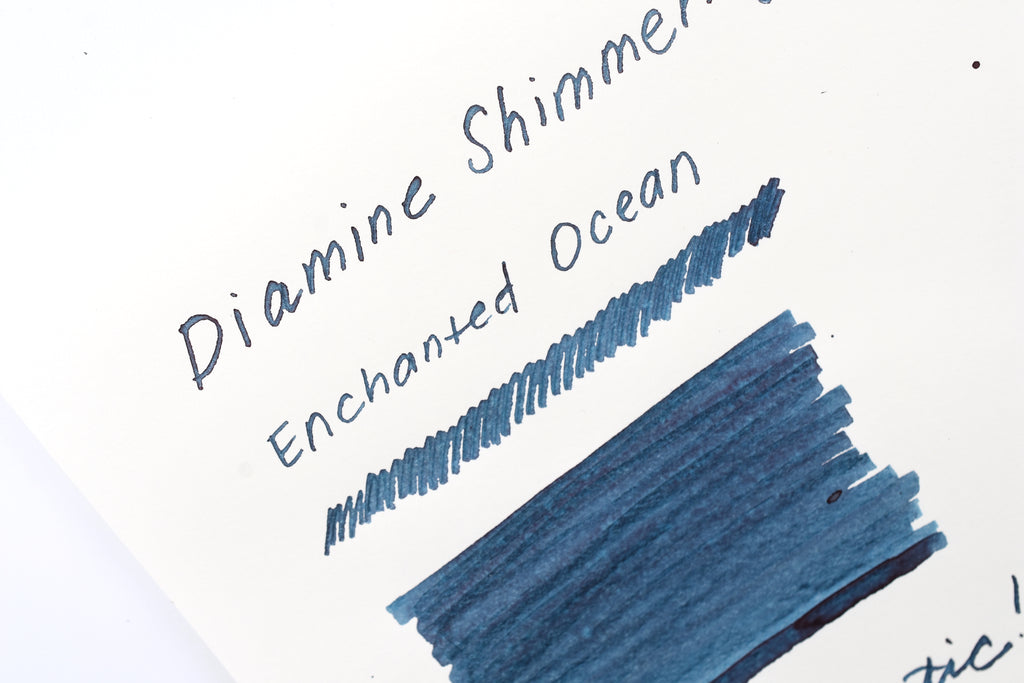 Diamine Shimmer
Enchanted Ocean
tic!